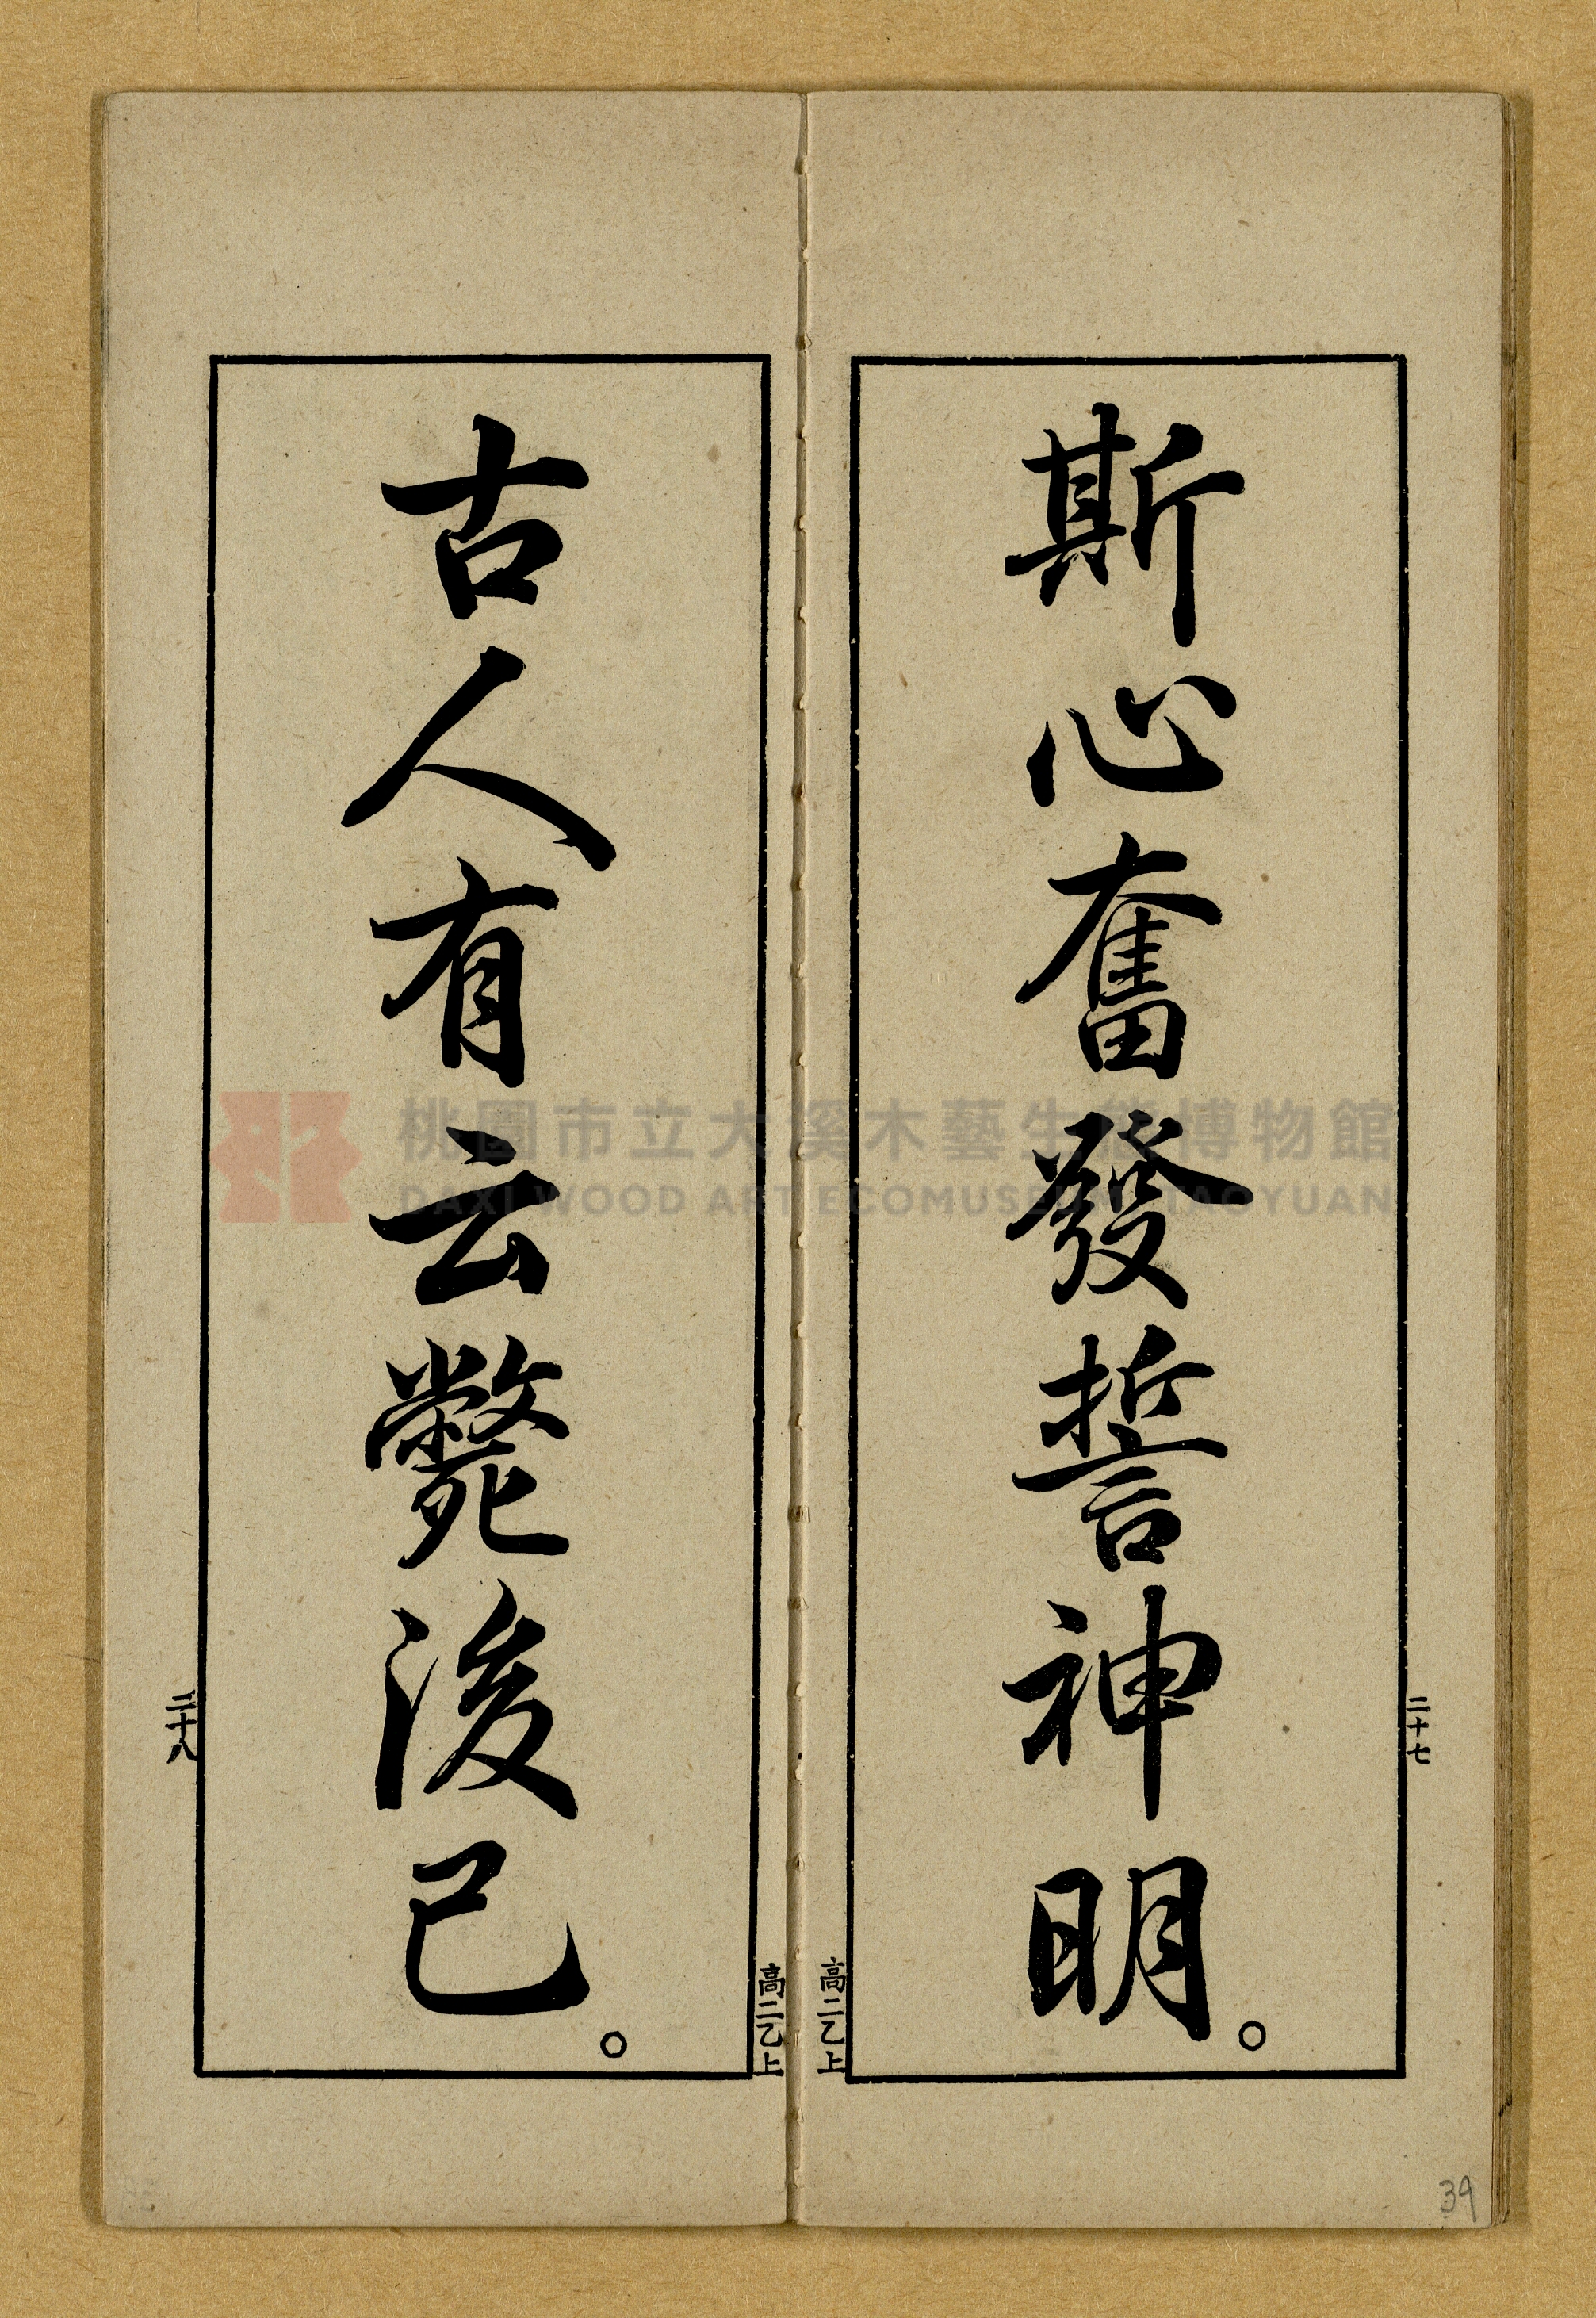 斯心奮發誓神明。
二十七
高二乙上
古人有云斃後已。
二十八
高二乙上
桃園市立大溪木藝生態博物館
DAXI WOOD ART ECOMUSEUM, TAOYUAN
39